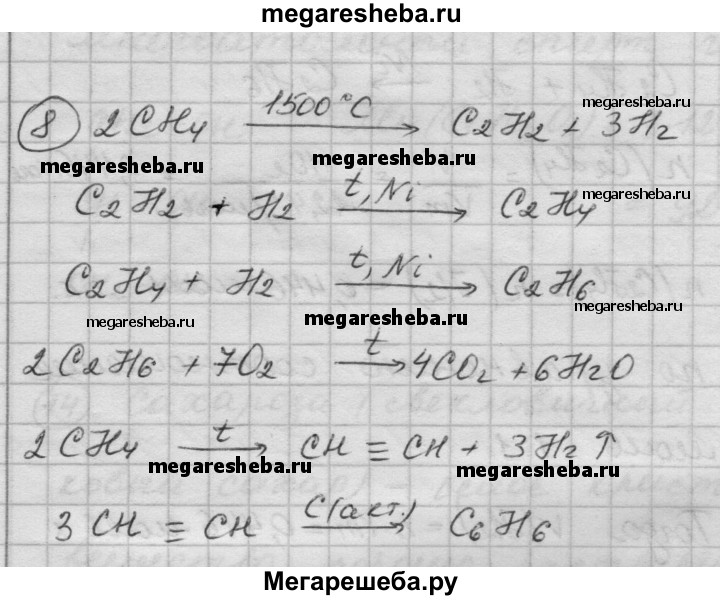 megaresheba.ru
8 2CH4 1500°C → C2H2 + 3H2
megaresheba.ru
megaresheba.ru
megaresheba.ru
C2H2 + H2 t, Ni → C2H4
megaresheba.ru
C2H4 + H2 t, Ni → C2H6
megaresheba.ru
megaresheba.ru
megaresheba.ru
2C2H6 + 7O2 t → 4CO2 + 6H2O
2CH4 t → CH ≡ CH + 3H2 ↑
megaresheba.ru
megaresheba.ru
3 CH ≡ CH C(акт.) → C6H6
Мегарешеба.ру